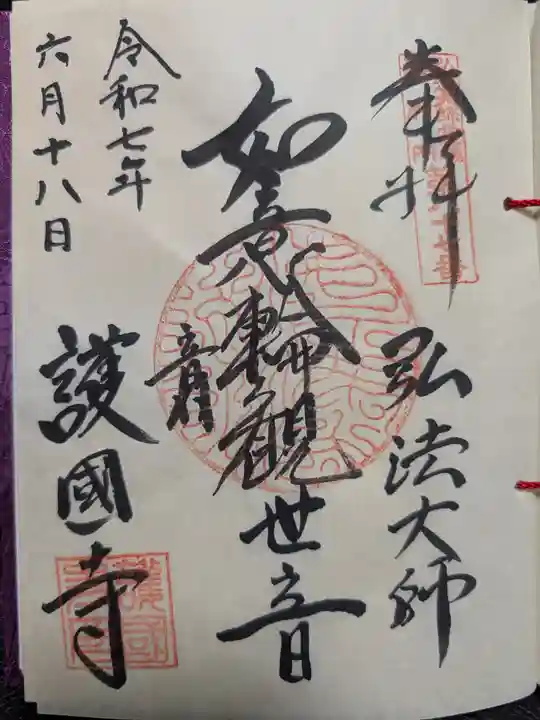 奉拝
弘法大師
如意輪觀世音
令和七年
六月十八日
護國寺